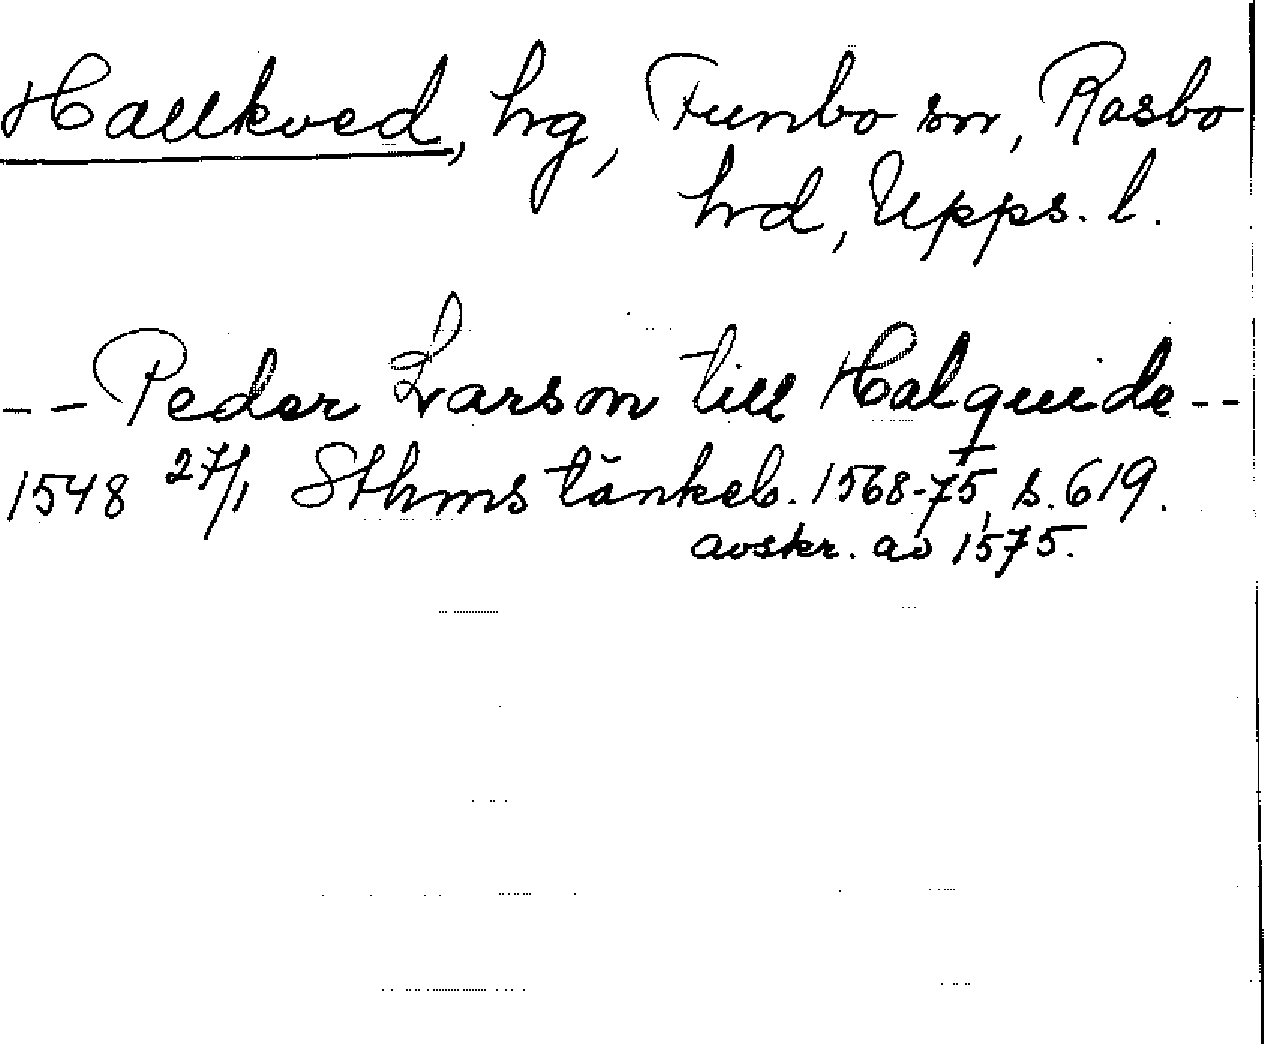 Hallkved, hg, Funbo sn, Rasbo
hd, Upps. l.
-- Peder Larson till Halquide --
1548 27/1 Sthms tänkeb. 1568-75, s. 619.
avskr. av 1575.